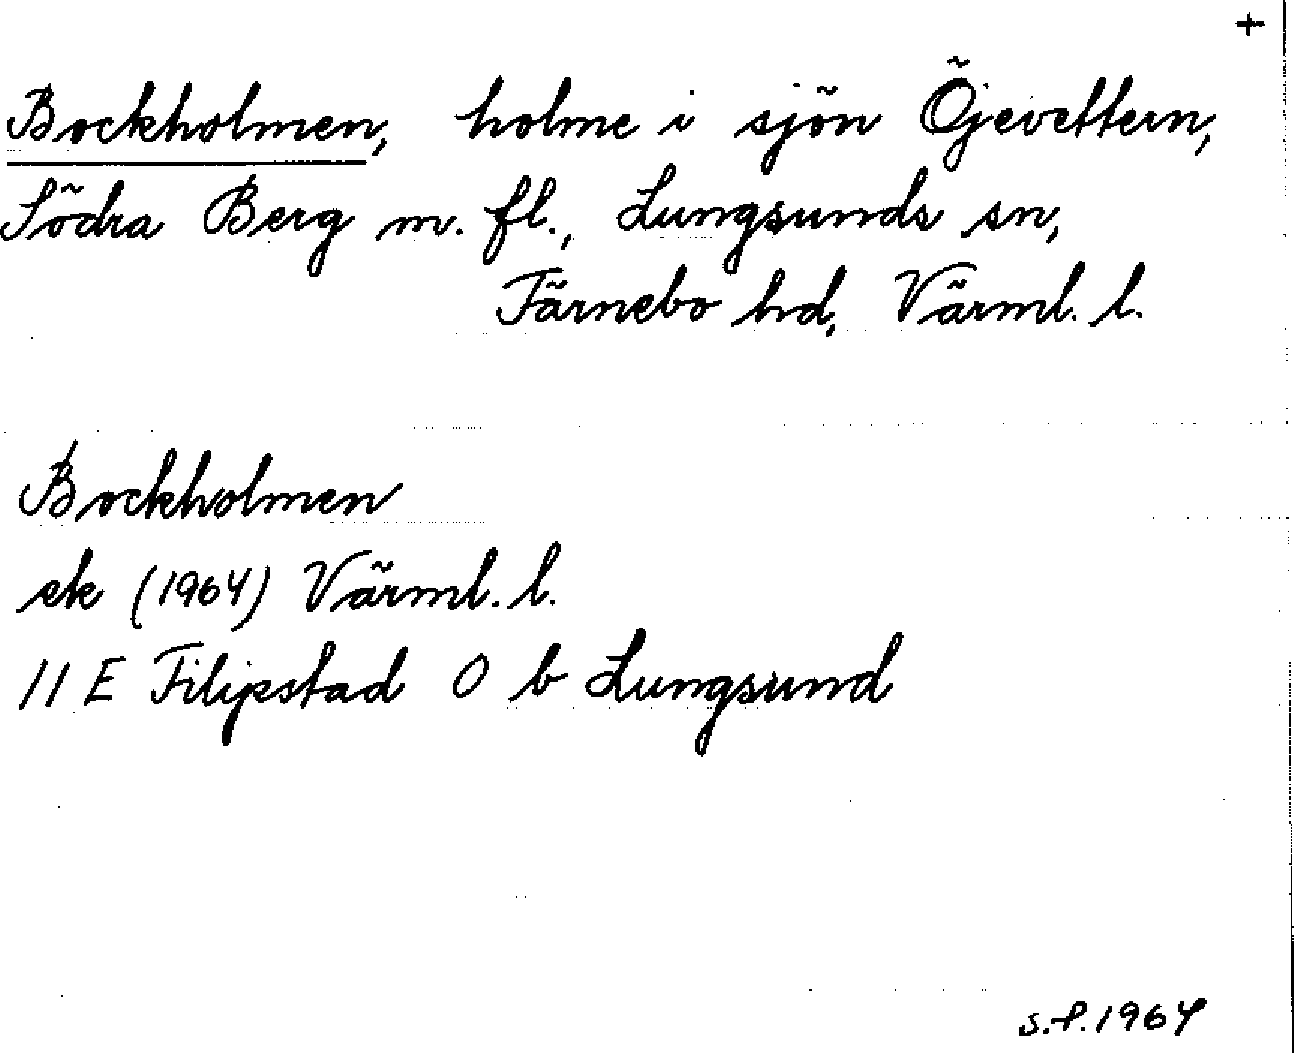 +
Bockholmen, holme i sjön Öjevettern,
Södra Berg m. fl., Lungsunds sn,
Färnebo hd, Värml. l.
Bockholmen
ek (1964) Värml. l.
11 E Filipstad O b Lungsund
s.f. 1964